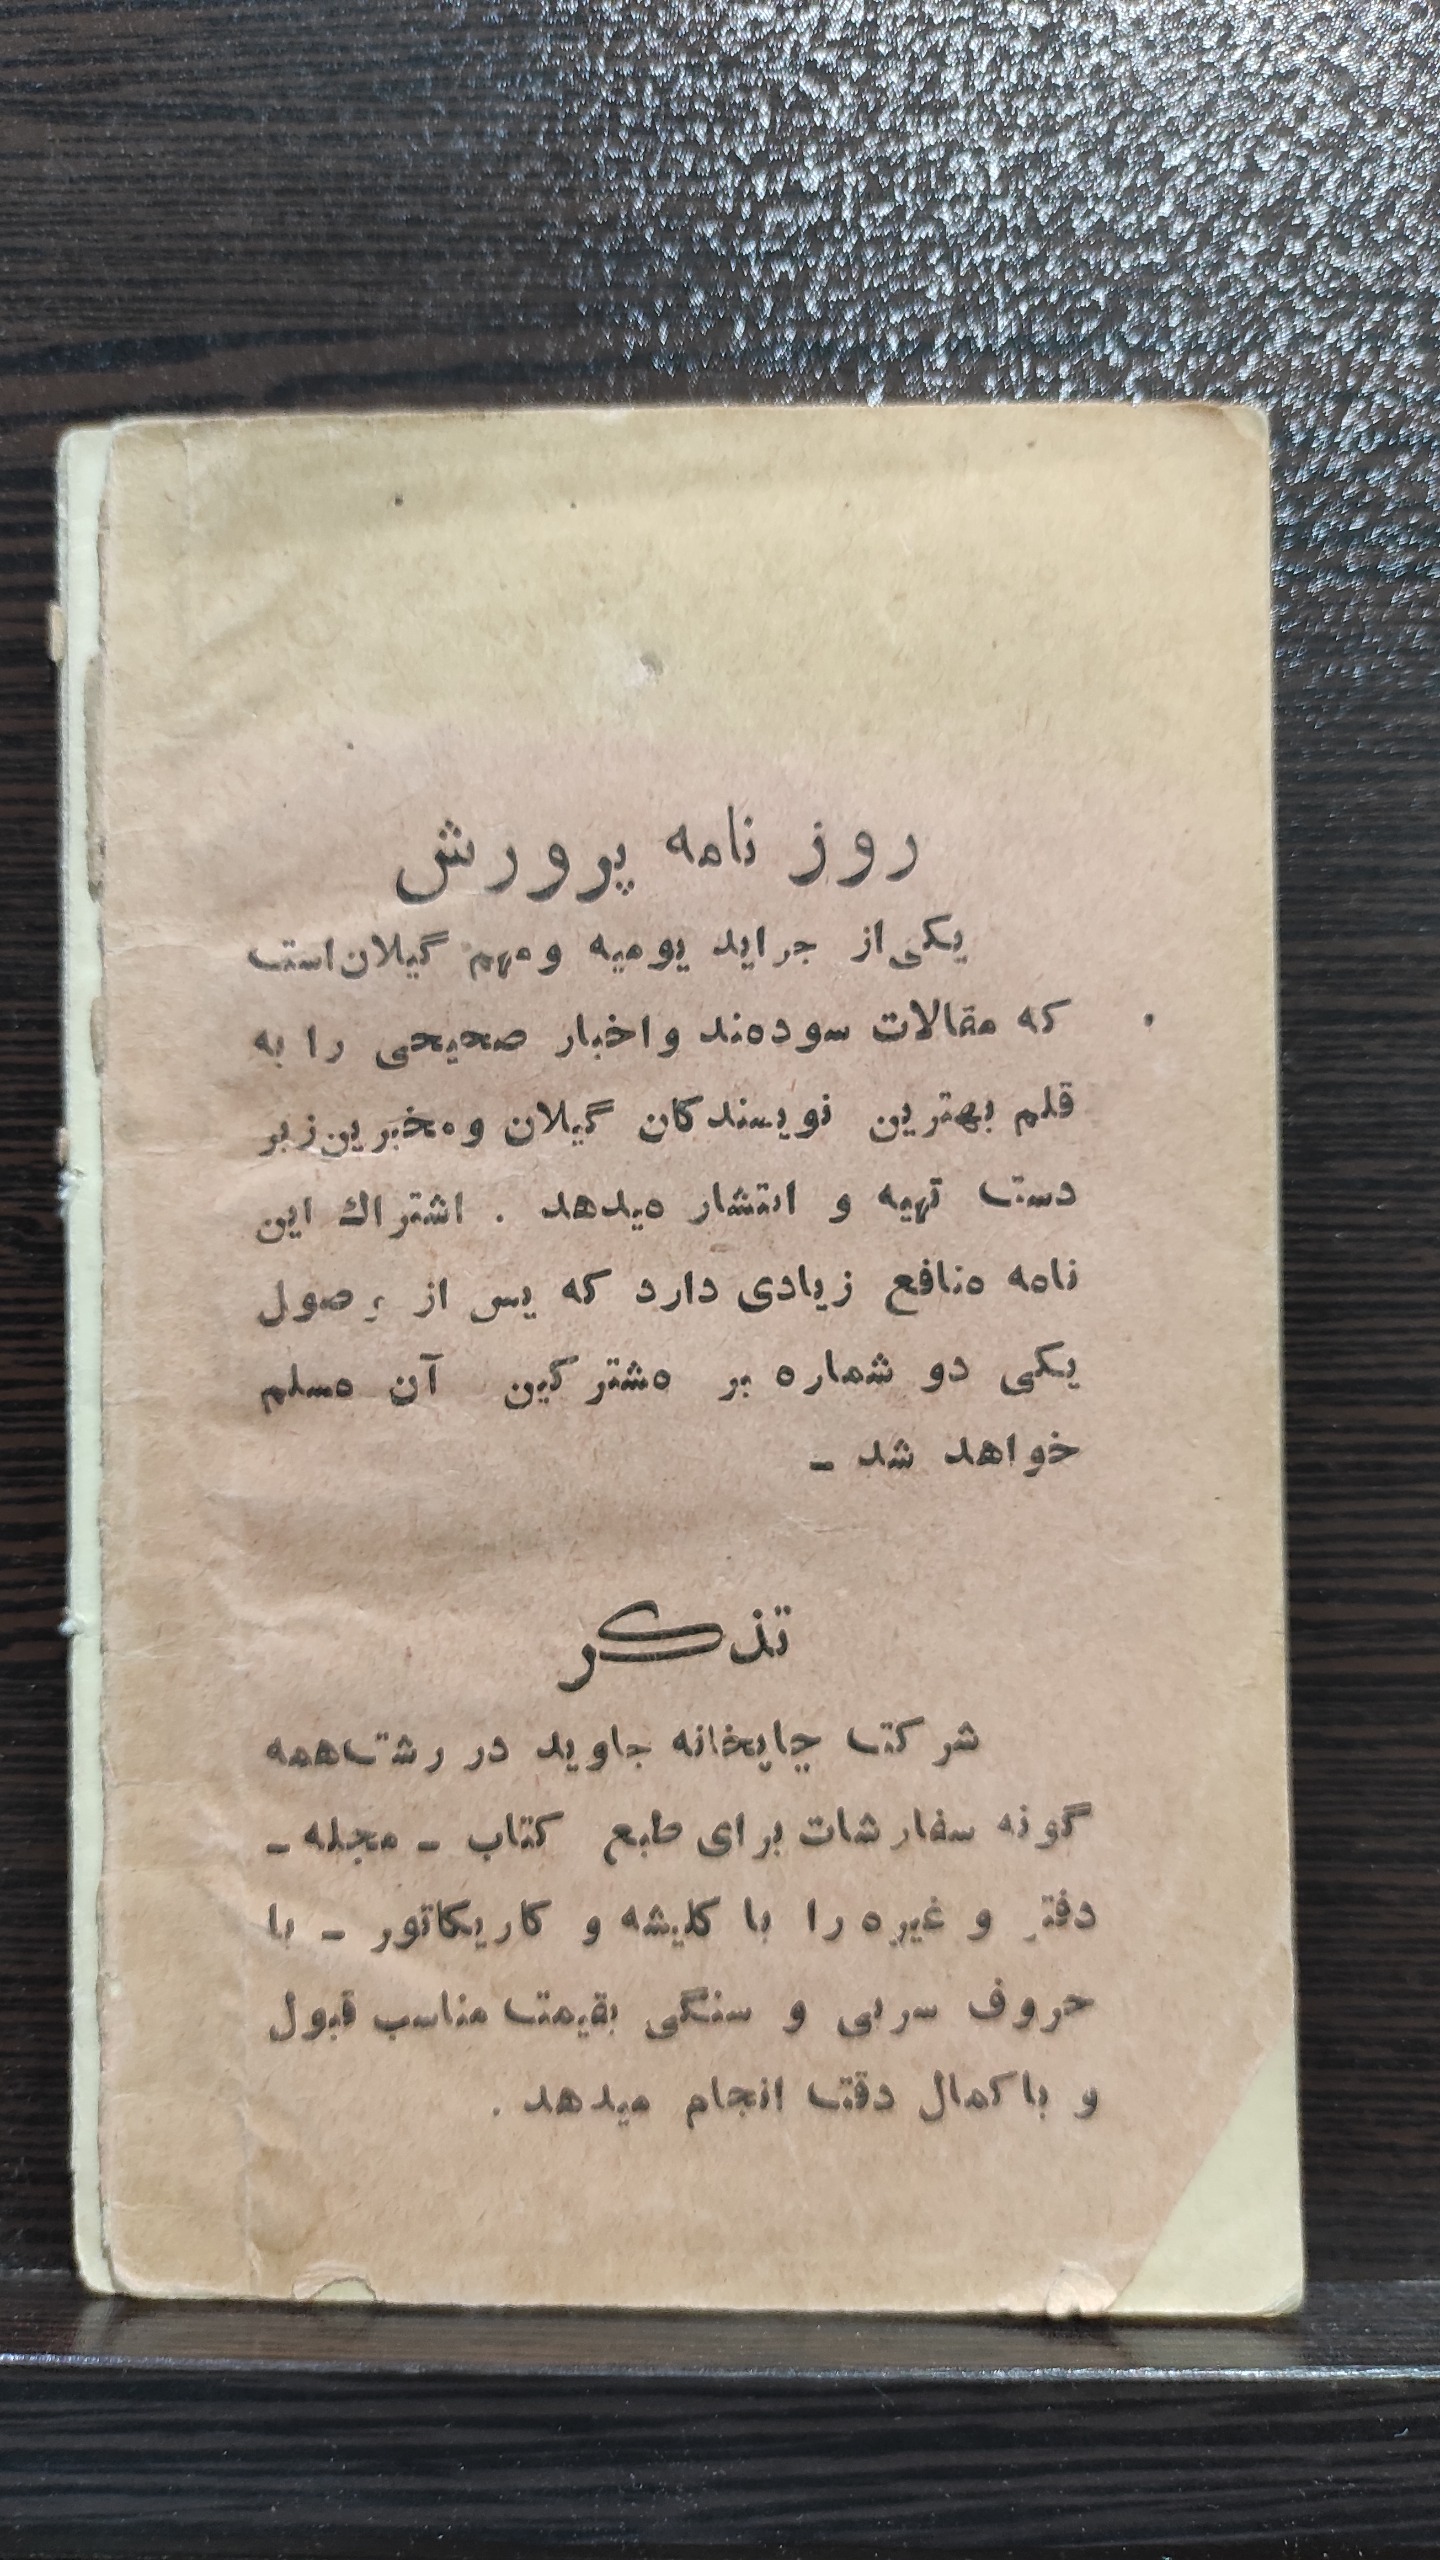 روز نامه پرورش
یکی از جراید یومیه ومهم گیلان است
که مقالات سودمند واخبار صحیحی را به
قلم بهترین نویسندکان گیلان ومخبرین زبر
دست تهیه و انتشار میدهد . اشتراك این
نامه منافع زیادی دارد که پس از وصول
یکی دو شماره بر مشترکین آن مسلم
خواهد شد ـ
تذکر
شرکت چاپخانه جاوید در رشت همه
گونه سفارشات برای طبع کتاب ـ مجله ـ
دفتر و غیره را با کلیشه و کاریکاتور ـ با
حروف سربی و سنگی بقیمت مناسب قبول
و با کمال دقت انجام میدهد .